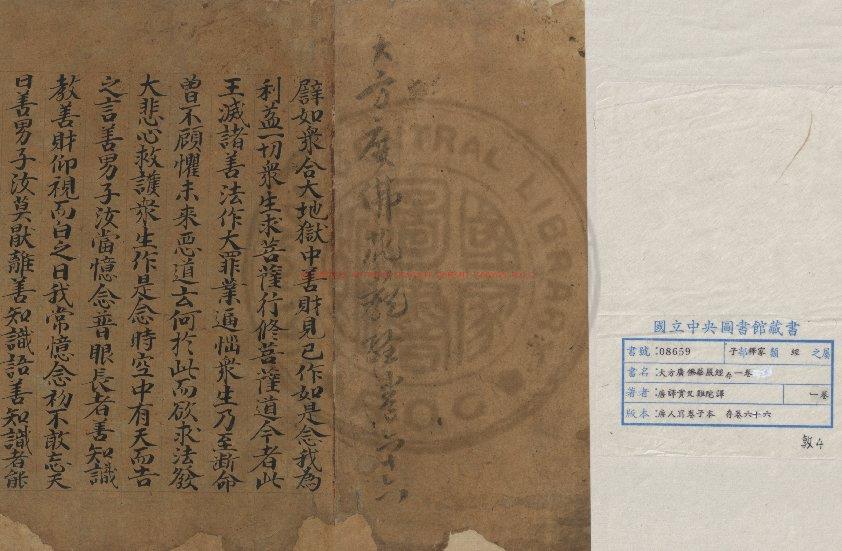 國立中央圖書館藏書
書號:08659 子部釋家類 經 之屬
書名:大方廣佛華嚴經存一卷
著者:唐釋實叉難陀譯 一卷
版本:唐人寫卷子本 存卷六十六
敦4
大方廣佛花嚴經卷六十六
譬如衆合大地獄中善財見已作如是念我為
利益一切衆生求菩薩行修菩薩道今者此
王滅諸善法作大罪業逼惱衆生乃至斷命
曽不顧懼未來惡道云何於此而欲求法發
大悲心救護衆生作是念時空中有天而告
之言善男子汝當憶念普眼長者善知識
教善財仰視而白之曰我常憶念初不敢忘天
曰善男子汝莫猒離善知識語善知識者能
CENTRAL LIBRARY